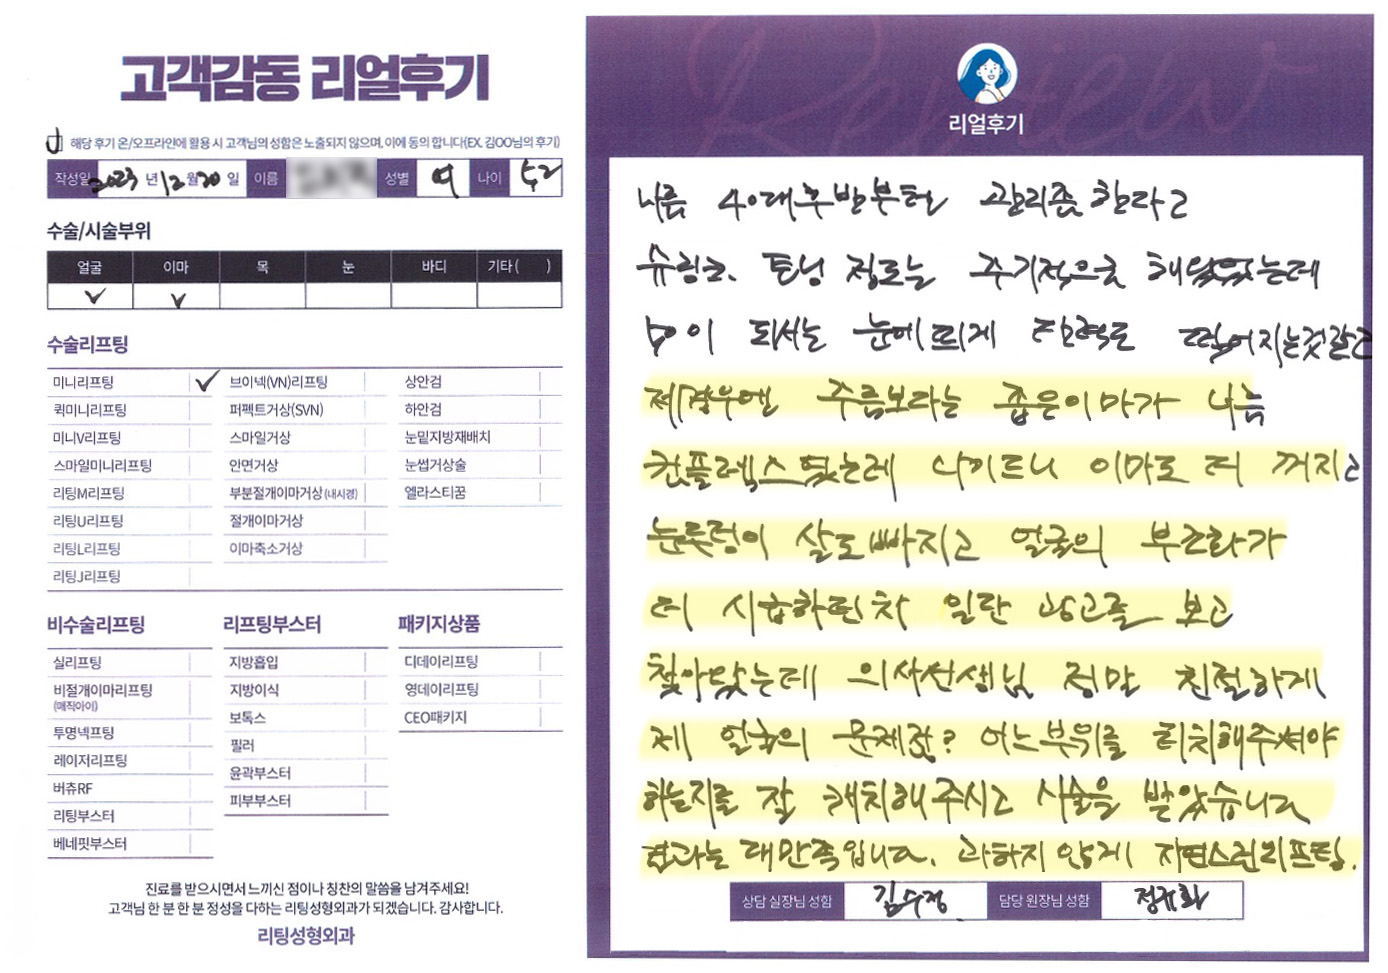 고객감동 리얼후기
해당 후기 온/오프라인에 활용 시 고객님의 성함은 노출되지 않으며, 이에 동의 합니다(EX. 김OO님의 후기)
작성일 2023 년 12 월 20 일 이름 성별 여 나이 52
수술/시술부위
얼굴 이마 목 눈 바디 기타 ( )
수술리프팅
미니리프팅 브이넥(VN)리프팅 상안검
퀵미니리프팅 퍼펙트거상(SVN) 하안검
미니V리프팅 스마일거상 눈밑지방재배치
스마일미니리프팅 안면거상 눈썹거상술
리팅M리프팅 부분절개이마거상 (내시경) 엘라스티꿈
리팅U리프팅 절개이마거상
리팅L리프팅 이마축소거상
리팅J리프팅
비수술리프팅 리프팅부스터 패키지상품
실리프팅 지방흡입 디데이리프팅
비절개이마리프팅 지방이식 영데이리프팅
(매직아이) 보톡스 CEO패키지
투명넥프팅 필러
레이저리프팅 윤곽부스터
버츄RF 피부부스터
리팅부스터
베네핏부스터
진료를 받으시면서 느끼신 점이나 칭찬의 말씀을 남겨주세요!
고객님 한 분 한 분 정성을 다하는 리팅성형외과가 되겠습니다. 감사합니다.
리팅성형외과
Review
리얼후기
나름 40대후반부터 관리좀 한다고
슈링크. 토닝 정도는 주기적으로 해왔었는데
50이 되서는 눈에 띄게 탄력도 떨어지는것같고
제경우엔 주름보다는 좁은이마가 나름
컨플렉스였는데 나이드니 이마도 더 꺼지고
눈두덩이 살도 빠지고 얼굴의 부조화가
더 시급하던차 일단 광고를 보고
찾아왔는데 의사선생님 정말 친절하게
제 얼굴의 문제점? 어느부위를 터치해주셔야
하는지를 잘 캐치해주시고 시술을 받았습니다
결과는 대만족입니다. 과하지 않게 자연스런리프팅.
상담 실장님 성함 김수정 담당 원장님 성함 정규화